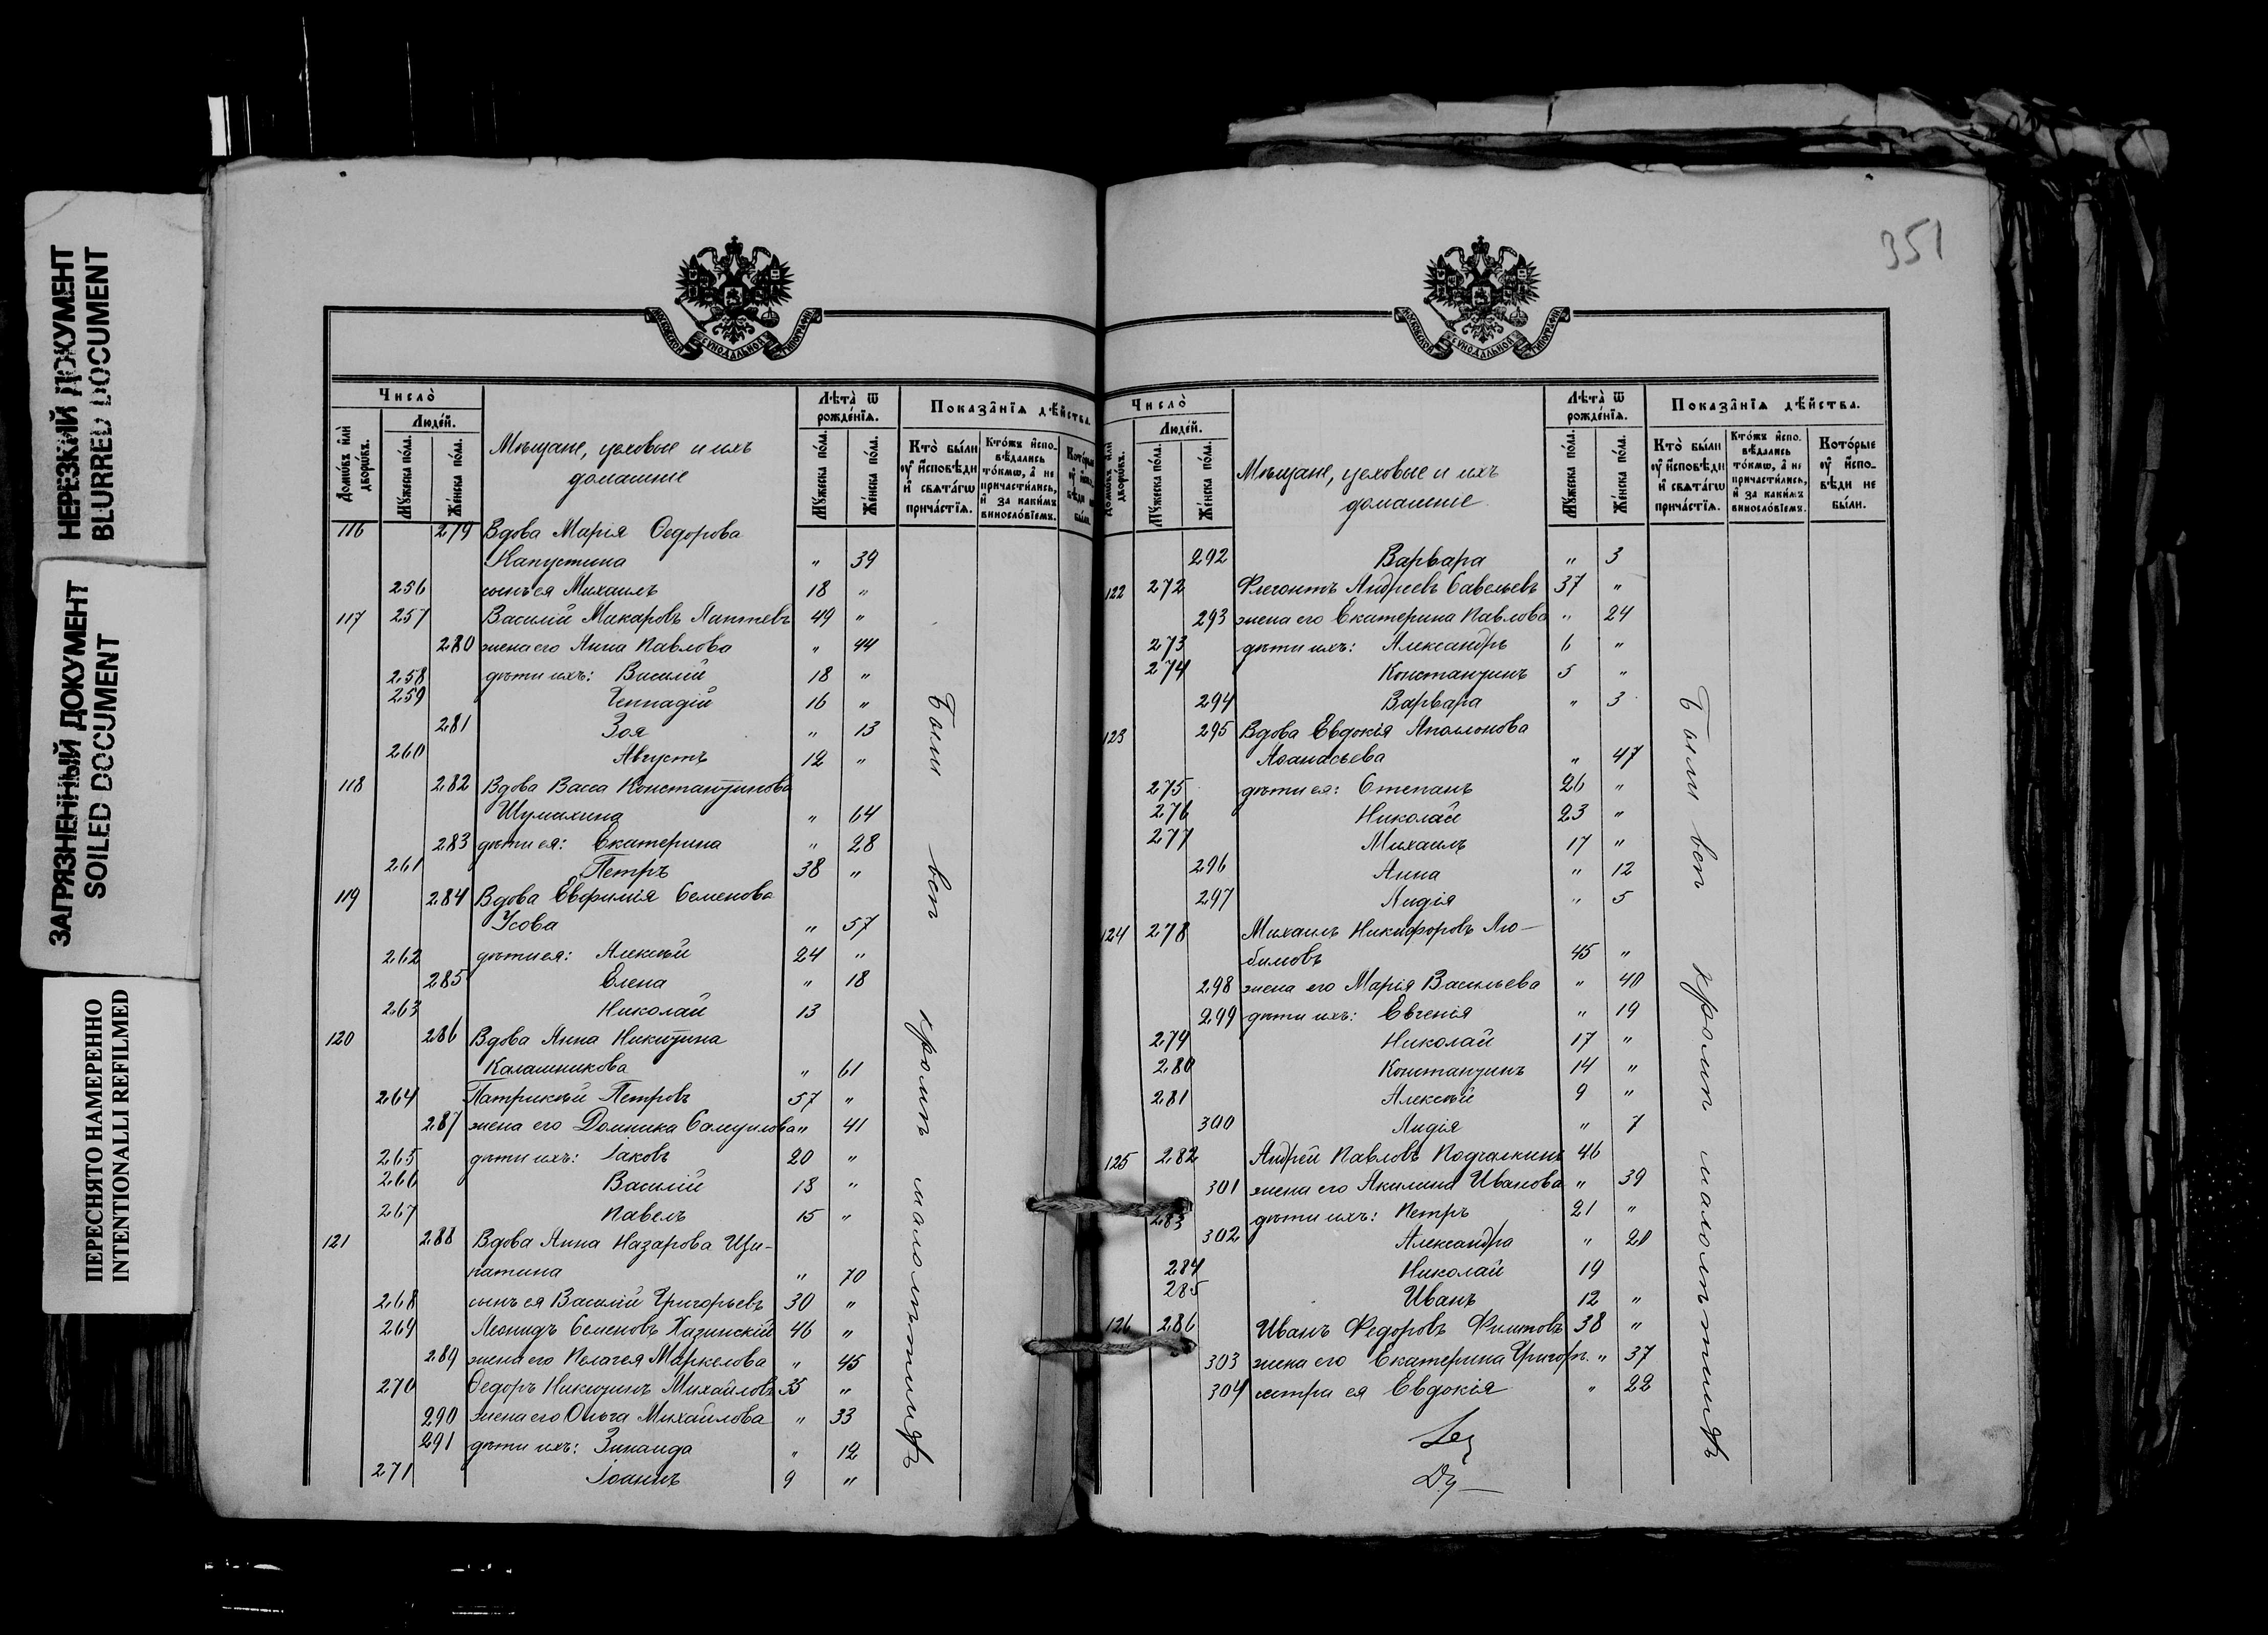 НЕРЕЗКИЙ ДОКУМЕНТ
BLURRED DOCUMENT
ЗАГРЯЗНЕННЫЙ ДОКУМЕНТ
SOILED DOCUMENT
ПЕРЕСНЯТО НАМЕРЕННО
INTENTIONALLI REFILMED
МОСКОВСКОЙ СѴНОДАЛЬНОЙ ТИПОГРАФІИ
Число̀
Домѡ́въ и҆лѝ дворѡ́въ.
Люде́й.
Мꙋ́жеска по́ла.
Же́нска по́ла.
Мѣщане, цеховые и ихъ
домашніе
Лѣта̀ ѿ рожде́нїѧ.
Мꙋ́жеска по́ла.
Же́нска по́ла.
Показа̑нїѧ дѣ́йства.
Кто̀ бы́ли ᲂу҆ и҆сповѣ́ди и҆ свѧта́гѡ прича́стїѧ.
Кто́жъ и҆спо- вѣ́дались то́кмѡ, а҆ не причасти́лись, и҆ за каки́мъ винослѡ́вїемъ.
Кото́рые ᲂу҆ и҆спо- вѣ́ди не бы́ли.
116 279 Вдова Марія Ѳедорова
Капустина " 39
256 сынъ ея Михаилъ 18 "
117 257 Василій Макаровъ Лаптевъ 49 "
280 жена его Анна Павлова " 44
258 дѣти ихъ: Василій 18 "
259 Геннадій 16 "
281 Зоя " 13
260 Августъ 12 "
118 282 Вдова Васса Константинова
Шумихина " 64
283 дѣти ея: Екатерина " 28
261 Петръ 38 "
119 284 Вдова Евфимія Семенова
Усова " 57
262 дѣти ея: Алексѣй 24 "
285 Елена " 18
263 Николай 13
120 286 Вдова Анна Никитина
Калашникова " 61
264 Патрикѣй Петровъ 57 "
287 жена его Домника Самуилова " 41
265 дѣти ихъ: Іаковъ 20 "
266 Василій 18 "
267 Павелъ 15 "
121 288 Вдова Анна Назарова Щи-
патина " 70
268 сынъ ея Василій Григорьевъ 30 "
269 Леонидъ Семеновъ Хазинскій 46 "
289 жена его Пелагея Маркелова " 45
270 Ѳедоръ Никитинъ Михайловъ 35 "
290 жена его Ольга Михайлова " 33
291 дѣти ихъ: Зинаида " 12
271 Іоаннъ 9 "
Были всѣ кромѣ малолѣтнихъ
351
МОСКОВСКОЙ СѴНОДАЛЬНОЙ ТИПОГРАФІИ
Число̀
Домѡ́въ и҆лѝ дворѡ́въ.
Люде́й.
Мꙋ́жеска по́ла.
Же́нска по́ла.
Мѣщане, цеховые и ихъ
домашніе
Лѣта̀ ѿ рожде́нїѧ.
Мꙋ́жеска по́ла.
Же́нска по́ла.
Показа̑нїѧ дѣ́йства.
Кто̀ бы́ли ᲂу҆ и҆сповѣ́ди и҆ свѧта́гѡ прича́стїѧ.
Кто́жъ и҆спо- вѣ́дались то́кмѡ, а҆ не причасти́лись, и҆ за каки́мъ винослѡ́вїемъ.
Кото́рые ᲂу҆ и҆спо- вѣ́ди не бы́ли.
292 Варвара " 3
122 272 Флегонтъ Андреевъ Савельевъ 37 "
293 жена его Екатерина Павлова " 24
273 дѣти ихъ: Александръ 6 "
274 Константинъ 5 "
294 Варвара " 3
123 295 Вдова Евдокія Аполлонова
Аѳанасьева " 47
275 дѣти ея: Степанъ 26 "
276 Николай 23 "
277 Михаилъ 17 "
296 Анна " 12
297 Лидія " 5
124 278 Михаилъ Никифоровъ Лю-
бимовъ 45 "
298 жена его Марія Васильева " 40
299 дѣти ихъ: Евгенія " 19
279 Николай 17 "
280 Константинъ 14 "
281 Алексѣй 9 "
300 Лидія " 7
125 282 Андрей Павловъ Подчалкинъ 46
301 жена его Акилина Иванова " 39
283 дѣти ихъ: Петръ 21 "
302 Александра " 20
284 Николай 19
285 Иванъ 12 "
126 286 Иванъ Федоровъ Филитовъ 38 "
303 жена его Екатерина Григорь. " 37
304 сестра ея Евдокія " 22
Были всѣ кромѣ малолѣтнихъ